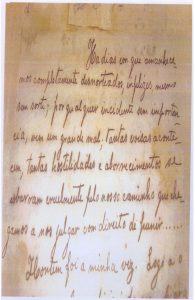 Ha dias com que amanhece
mos completamente desnorteados, infelizes, mesmo
sem sorte; por qualquer incidente sem importan
cia, vem um grande mal. Tantas coisas aconte
cem, tantas hostilidades e aborrecimentos se
atravessam cruelmente pelo nosso caminho que che
gamos a nos julgar com direito de punir.....
Hontem foi a minha vez. Logo a o